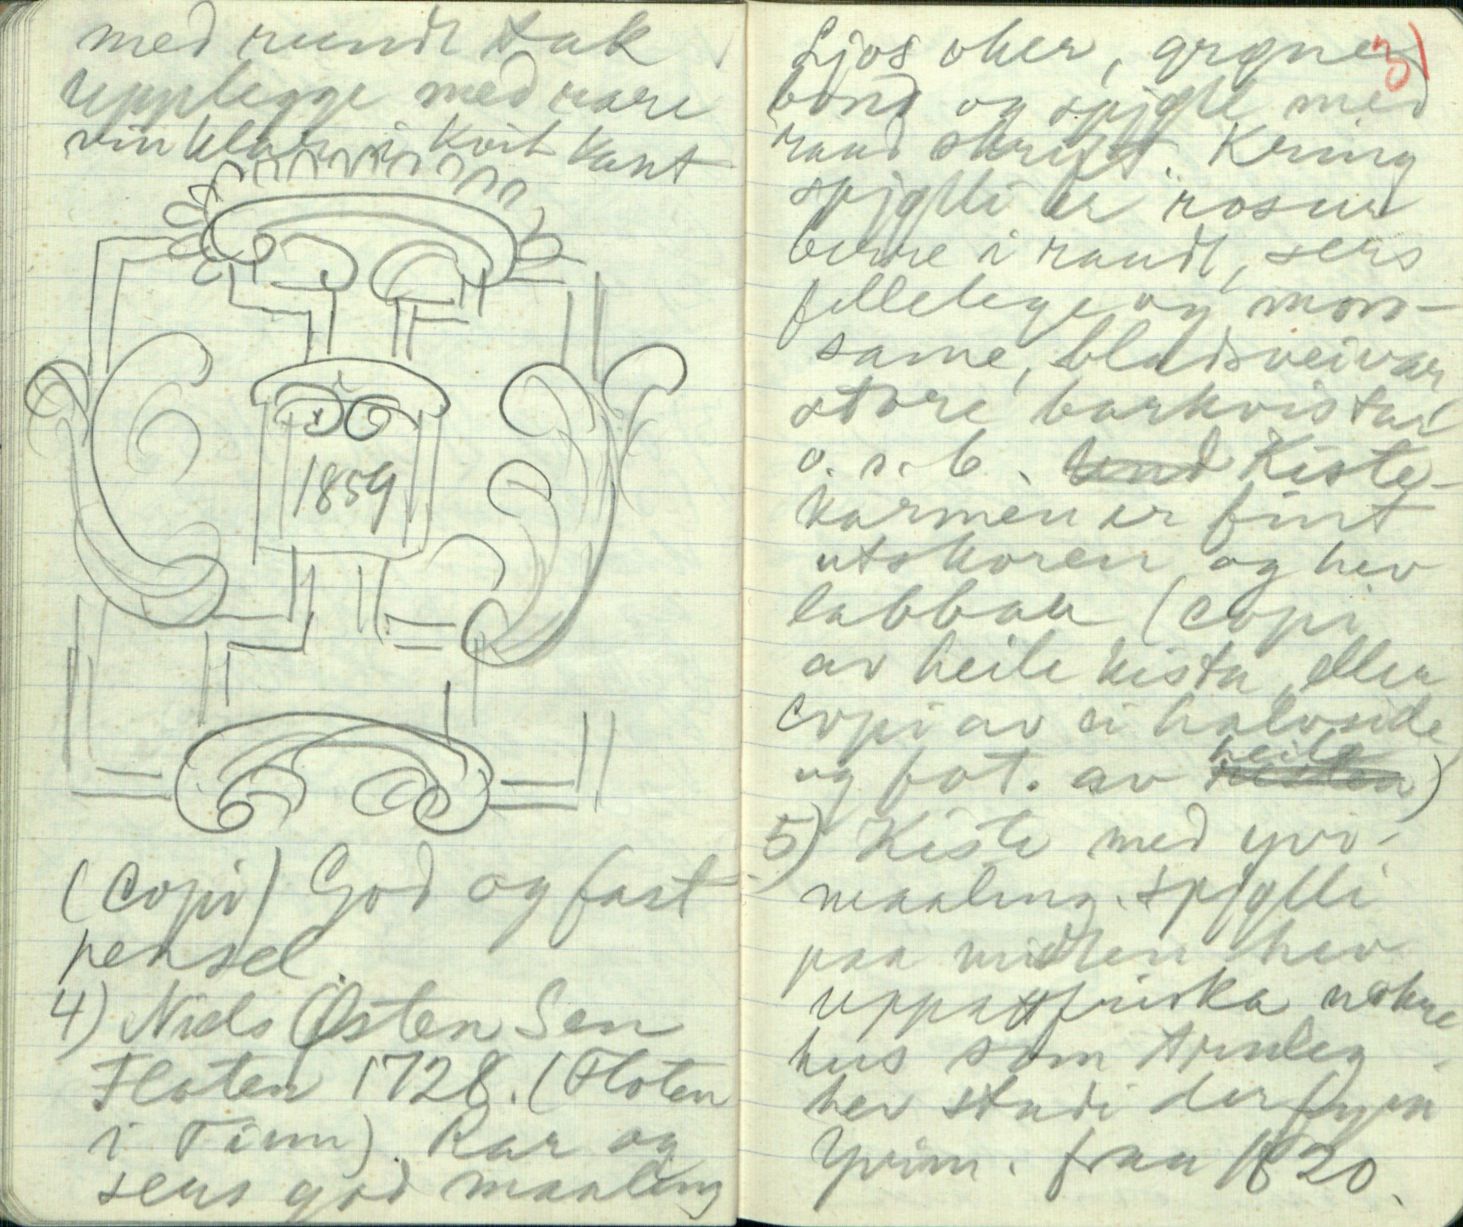 med rundt tak
Upplegge med rare
vinklar i kvit kant
1859
(Copi) God og fast
pensel.
4) Niels Østen Sen
Floten 1728. (Floten
i Tinn). Rar og
sers god maaling
3)
Ljos oker, grøne
bond og spjøll med
raud skrift. Kring
spjølli er rosur
berre i raudt, sers
fillelege og mor-
same, bladsveivar
store barkvistar
o. s. b. Kiste-
karmen er fint
utskoren og hev
labbar (Copi
av heile kista eller
Copi av ei halvside
og fot. av heile)
5) Kiste med yvi-
maaling. Spjølli
paa midten hev
uppattfriska nokre
hus som truleg
hev stadi der fyrr
Yvim. fraa 1820.